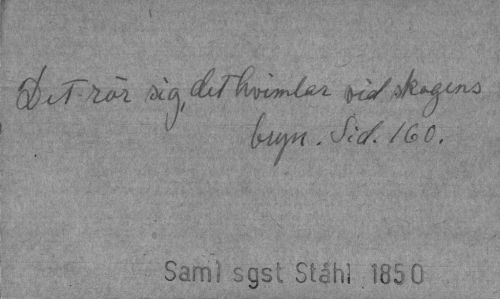 Det rör sig, det hvimlar vid skogens
bryn. Sid. 160.
Saml sgst Ståhl 1850